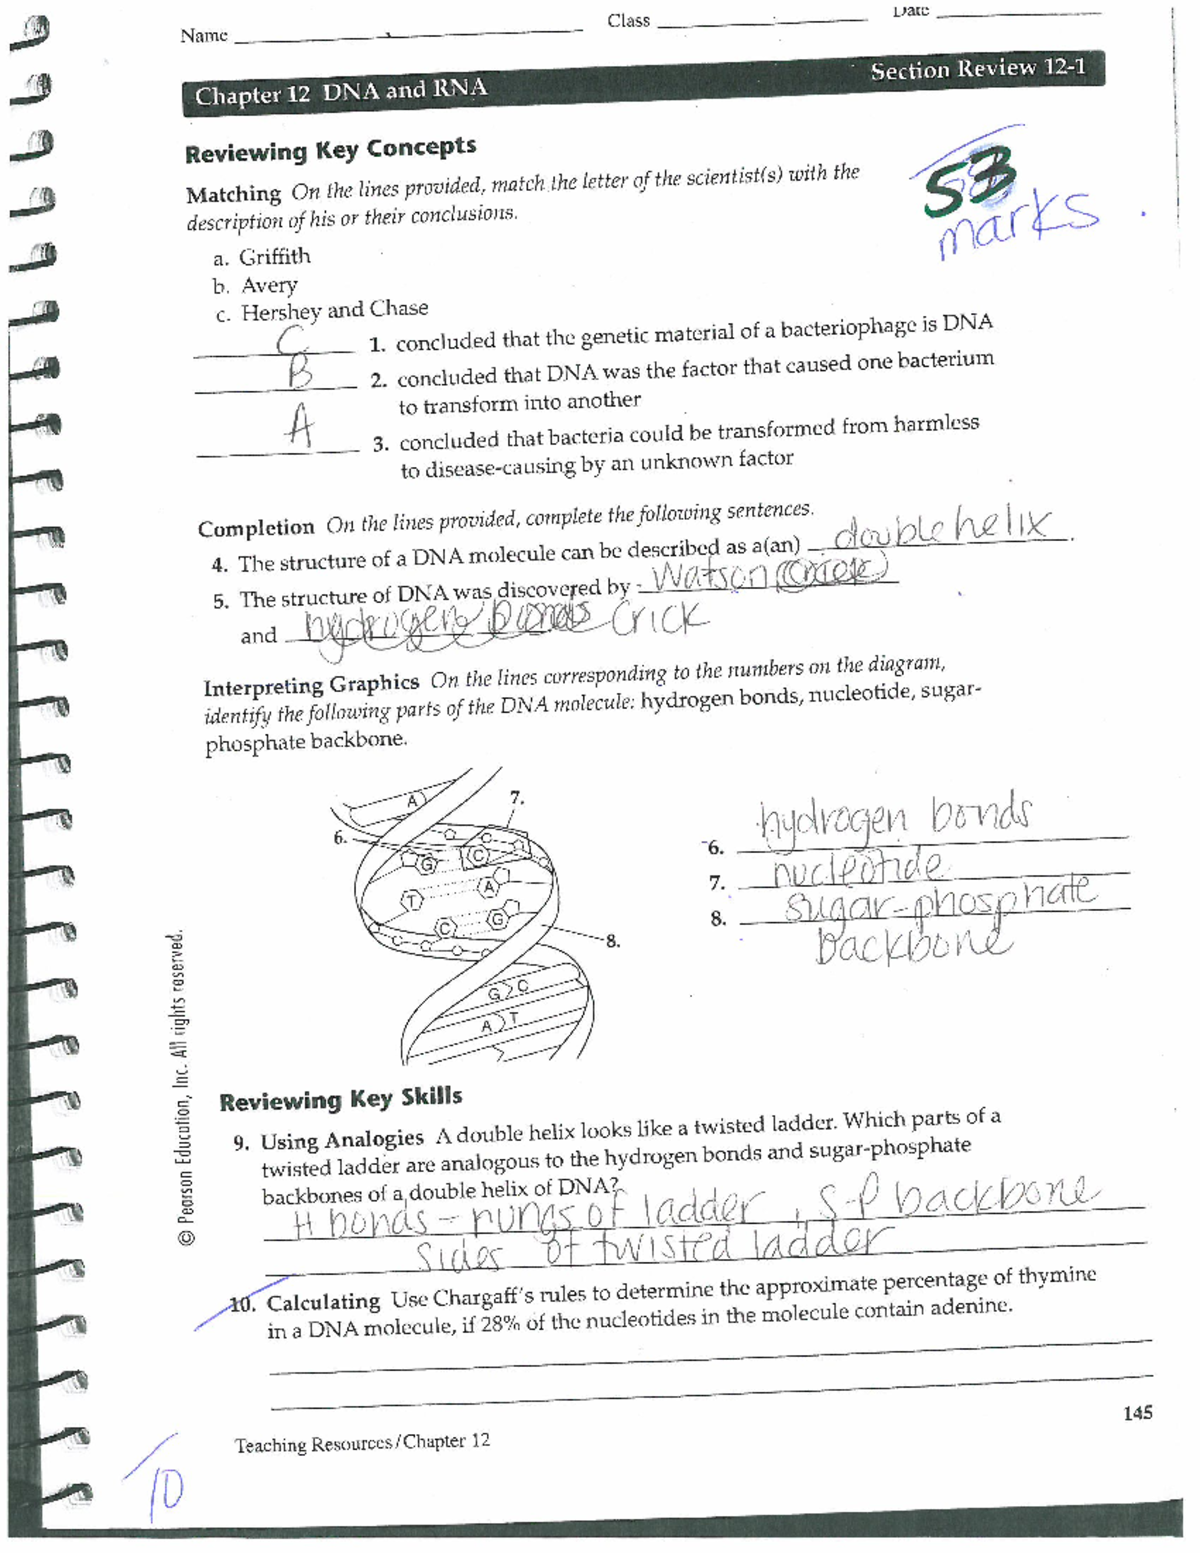 Name Class Date
Chapter 12 DNA and RNA Section Review 12-1
Reviewing Key Concepts
53
marks
Matching On the lines provided, match the letter of the scientist(s) with the
description of his or their conclusions.
a. Griffith
b. Avery
c. Hershey and Chase
C 1. concluded that the genetic material of a bacteriophage is DNA
B 2. concluded that DNA was the factor that caused one bacterium
to transform into another
A 3. concluded that bacteria could be transformed from harmless
to disease-causing by an unknown factor
Completion On the lines provided, complete the following sentences.
4. The structure of a DNA molecule can be described as a(an) double helix.
5. The structure of DNA was discovered by Watson
and hydrogen bonds Crick
Interpreting Graphics On the lines corresponding to the numbers on the diagram,
identify the following parts of the DNA molecule: hydrogen bonds, nucleotide, sugar-
phosphate backbone.
A 7.
6.
G C
T A
C G
8.
G C
A T
6. hydrogen bonds
7. nucleotide
8. sugar-phosphate
backbone
© Pearson Education, Inc. All rights reserved.
Reviewing Key Skills
9. Using Analogies A double helix looks like a twisted ladder. Which parts of a
twisted ladder are analogous to the hydrogen bonds and sugar-phosphate
backbones of a double helix of DNA?
H bonds - rungs of ladder, S-P backbone
sides of twisted ladder
10. Calculating Use Chargaff's rules to determine the approximate percentage of thymine
in a DNA molecule, if 28% of the nucleotides in the molecule contain adenine.
145
Teaching Resources/Chapter 12
/10